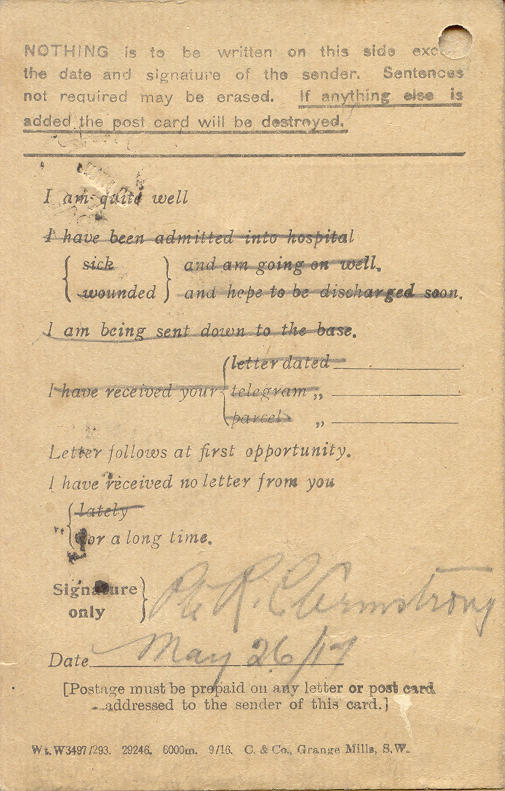 NOTHING is to be written on this side exc
the date and signature of the sender. Sentences
not required may be erased. If anything else is
added the post card will be destroyed.
I am quite well
I have been admitted into hospital
sick and am going on well.
wounded and hope to be discharged soon.
I am being sent down to the base.
letter dated
I have received your telegram „
parcel „
Letter follows at first opportunity.
I have received no letter from you
lately
for a long time.
Signature
only
Pte R. C Armstrong
Date May 26/17
[Postage must be prepaid on any letter or post card
addressed to the sender of this card.]
Wt. W3497/293. 29246. 6000m. 9/16. C. & Co., Grange Mills, S.W.